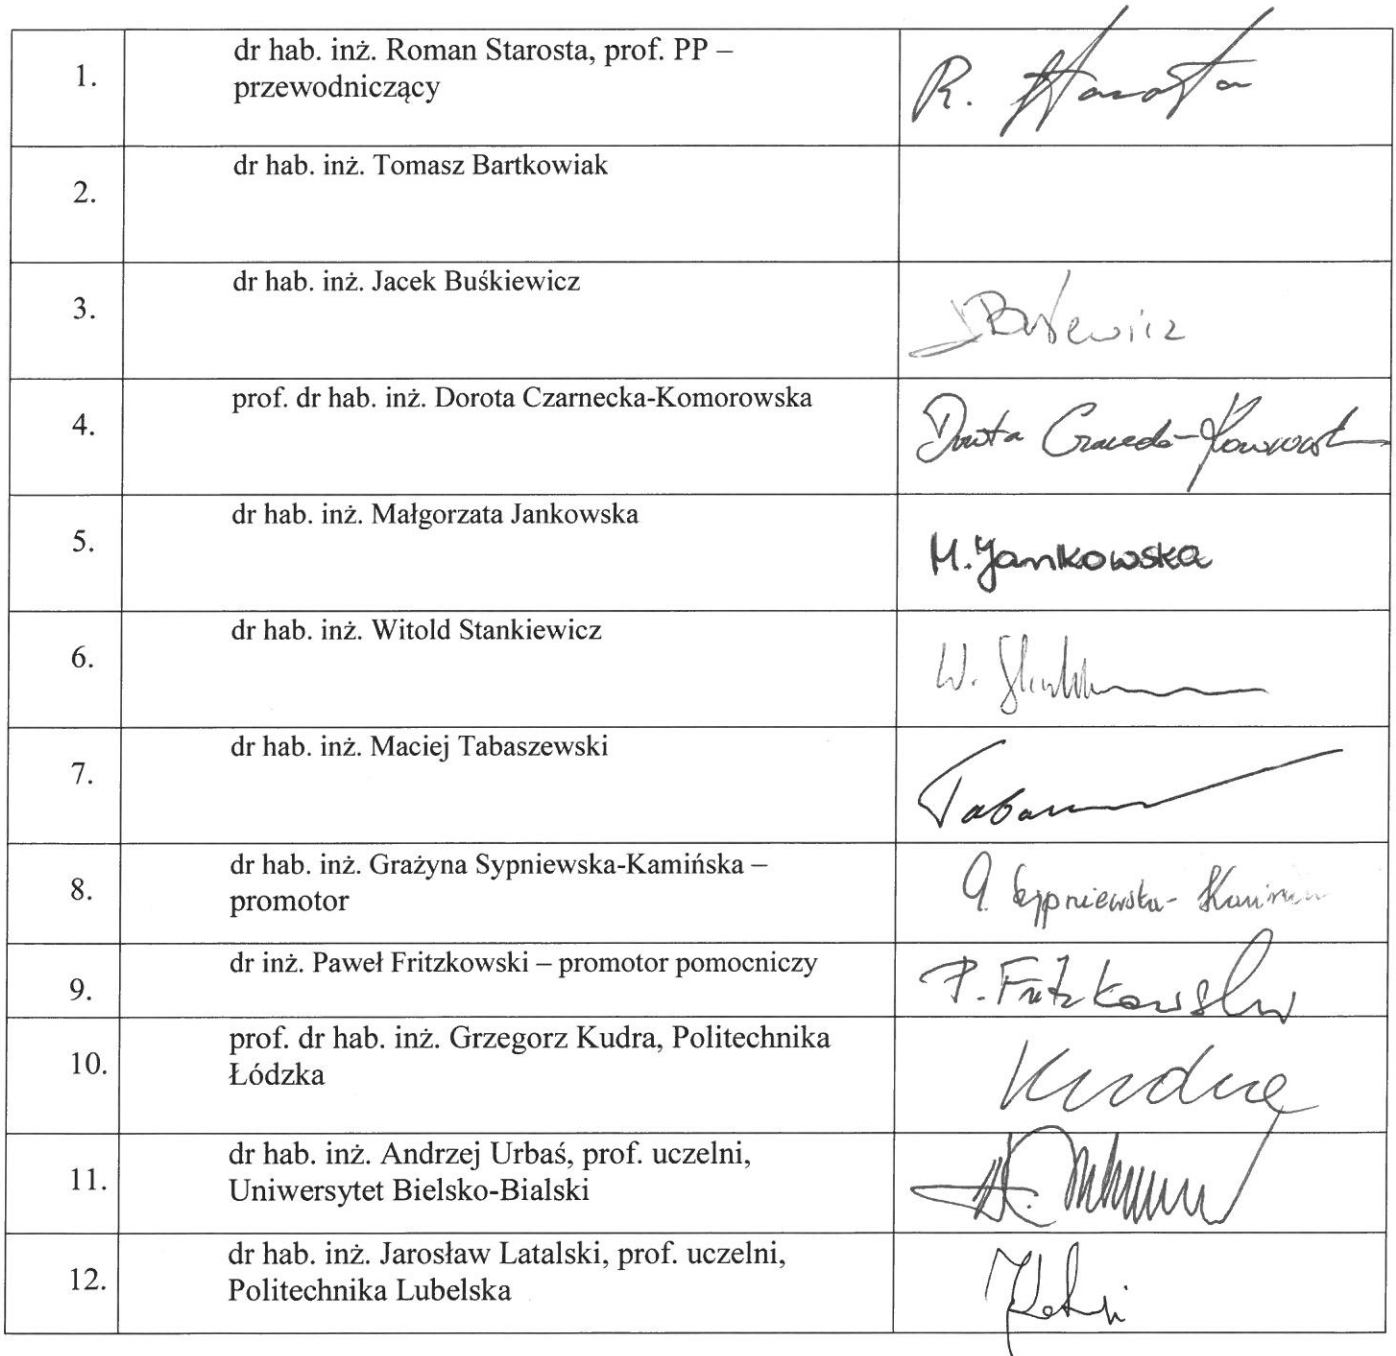 1.
dr hab. inż. Roman Starosta, prof. PP –
przewodniczący
R. Starosta
2.
dr hab. inż. Tomasz Bartkowiak
3.
dr hab. inż. Jacek Buśkiewicz
4.
prof. dr hab. inż. Dorota Czarnecka-Komorowska
Dorota Czarnecka-Komorowska
5.
dr hab. inż. Małgorzata Jankowska
M. Jankowska
6.
dr hab. inż. Witold Stankiewicz
W.
7.
dr hab. inż. Maciej Tabaszewski
8.
dr hab. inż. Grażyna Sypniewska-Kamińska –
promotor
G. Sypniewska-Kamińska
9.
dr inż. Paweł Fritzkowski – promotor pomocniczy
P. Fritzkowski
10.
prof. dr hab. inż. Grzegorz Kudra, Politechnika
Łódzka
Kudra
11.
dr hab. inż. Andrzej Urbaś, prof. uczelni,
Uniwersytet Bielsko-Bialski
12.
dr hab. inż. Jarosław Latalski, prof. uczelni,
Politechnika Lubelska